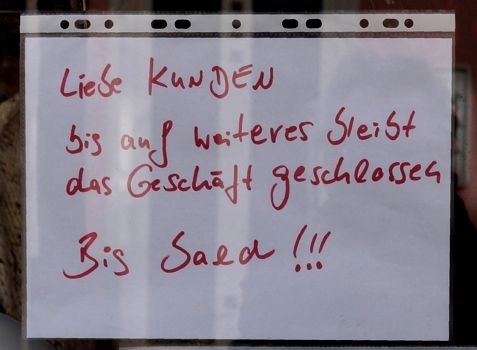 Liebe KUNDEN
bis auf weiteres bleibt
das Geschäft geschlossen
Bis bald !!!